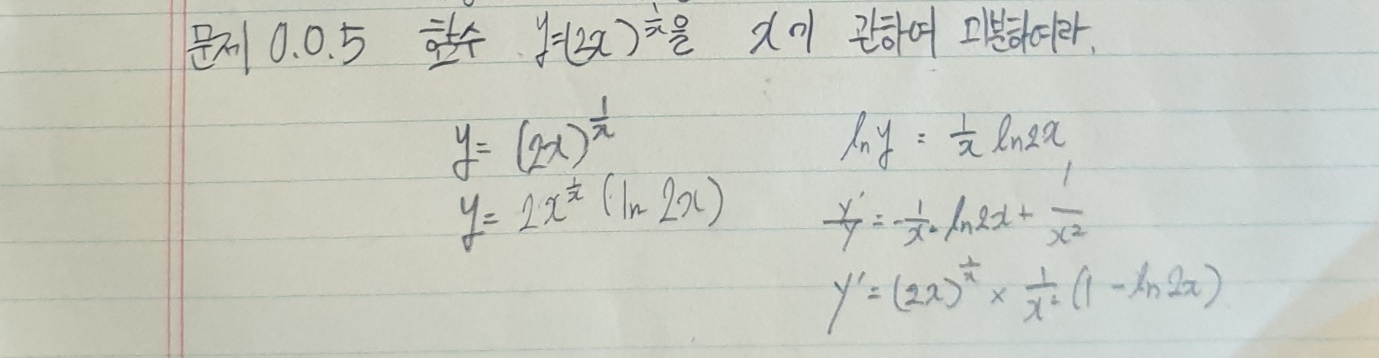 문제 0.0.5 함수 y=(2x)^{1/x}을 x에 관하여 미분하여라.
y= (2x)^{1/x}
y= 2x^{1/x} (ln 2x)
ln y = 1/x ln2x
y'/y = -1/x² ln2x + 1/x²
y' = (2x)^{1/x} × 1/x² (1 - ln 2x)